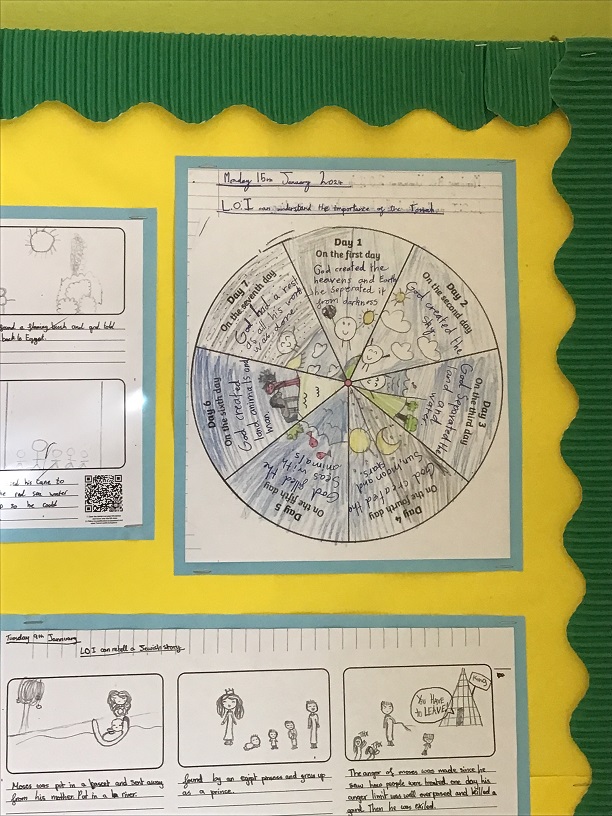 Monday 15th January 2024
L.O.I can understand the importance of the Torah.
Day 1
On the first day
God created the
heavens and Earth
he seperated it
from darkness
Day 2
On the second day
God created the
sky
Day 3
On the third day
God separated the
land and
water
Day 4
On the fourth day
God created the
Sun, moon and
stars.
Day 5
On the fifth day
God filled the
seas with
animals
Day 6
On the sixth day
God created
land animals and
human
Day 7
On the seventh day
God had a rest
as all his work
was done
found a flaming bush and god told
back to Egypt.
his cane to
the red sea water
so he could
Tuesday 9th Jannuary
LO I can retell a Jewish story
Moses was put in a basent and sent away
from his mother. Put in a river.
found by an egypt princess and grew up
as a prince.
You Have
to LEAVE!
King
The anger of moses was made since he
saw how people were treated. one day his
anger limit was well over passed and killed a
gaurd. Then he was exiled.